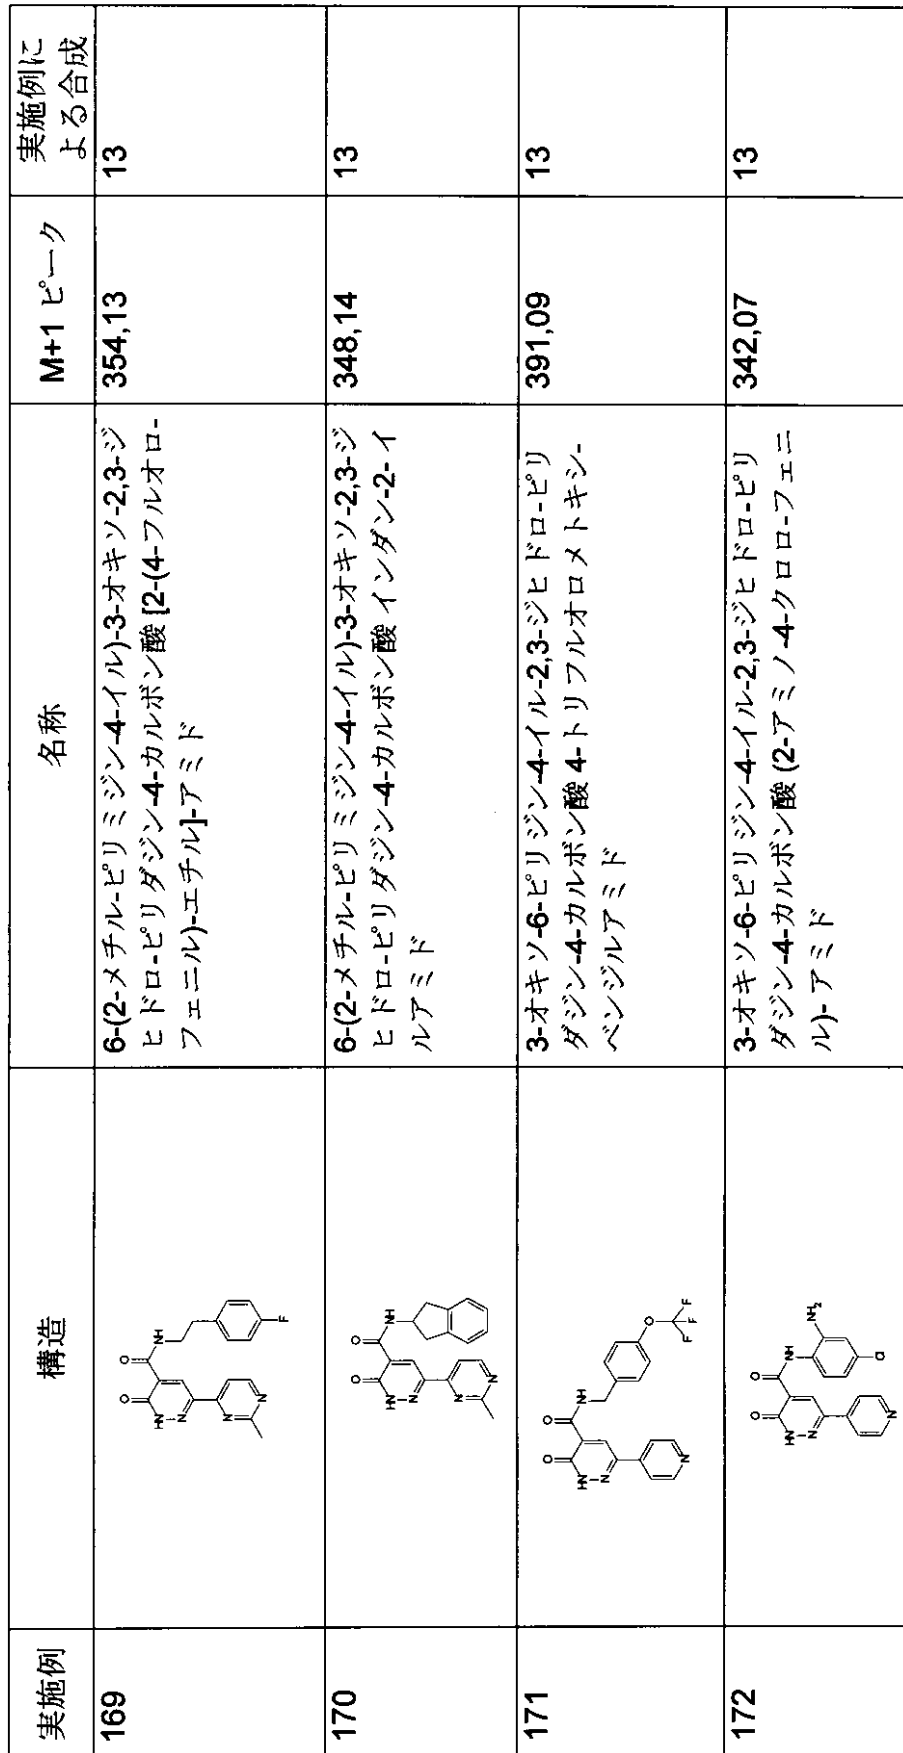 実施例
構造
名称
M+1 ピーク
実施例に
よる合成
169
6-(2-メチル-ピリミジン-4-イル)-3-オキソ-2,3-ジ
ヒドロ-ピリダジン-4-カルボン酸 [2-(4-フルオロ-
フェニル)-エチル]-アミド
354,13
13
O
O
NH
HN
N
N
N
F
170
6-(2-メチル-ピリミジン-4-イル)-3-オキソ-2,3-ジ
ヒドロ-ピリダジン-4-カルボン酸 インダン-2-イ
ルアミド
348,14
13
O
O
NH
HN
N
N
N
171
3-オキソ-6-ピリジン-4-イル-2,3-ジヒドロ-ピリ
ダジン-4-カルボン酸 4-トリフルオロメトキシ-
ベンジルアミド
391,09
13
O
O
NH
HN
N
N
O
F
F
F
172
3-オキソ-6-ピリジン-4-イル-2,3-ジヒドロ-ピリ
ダジン-4-カルボン酸 (2-アミノ-4-クロロ-フェニ
ル)- アミド
342,07
13
O
O
NH
HN
N
N
NH2
Cl